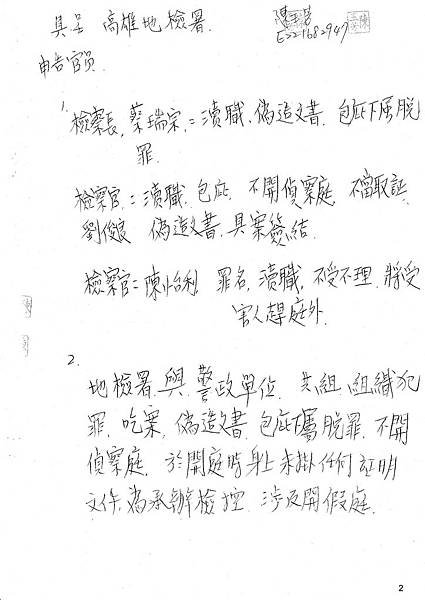 具呈 高雄地檢署.
E221682947
申告官員
1. 檢察長, 蔡瑞宗,= 瀆職, 偽造文書. 包庇下屬脫
罪.
檢察官,= 瀆職, 包庇, 不開偵察庭, 不當取証
劉俊良 偽造文書. 具案簽結.
檢察官= 陳怡利 罪名, 瀆職, 不受不理. 將受
害人趕庭外.
2.
地檢署. 與. 警政單位. 共組. 組織犯
罪. 吃案, 偽造文書, 包庇下屬脫罪. 不開
偵察庭. 於開庭時身上未掛任何証明
文件, 為承辦檢控. 涉及開假庭.
2